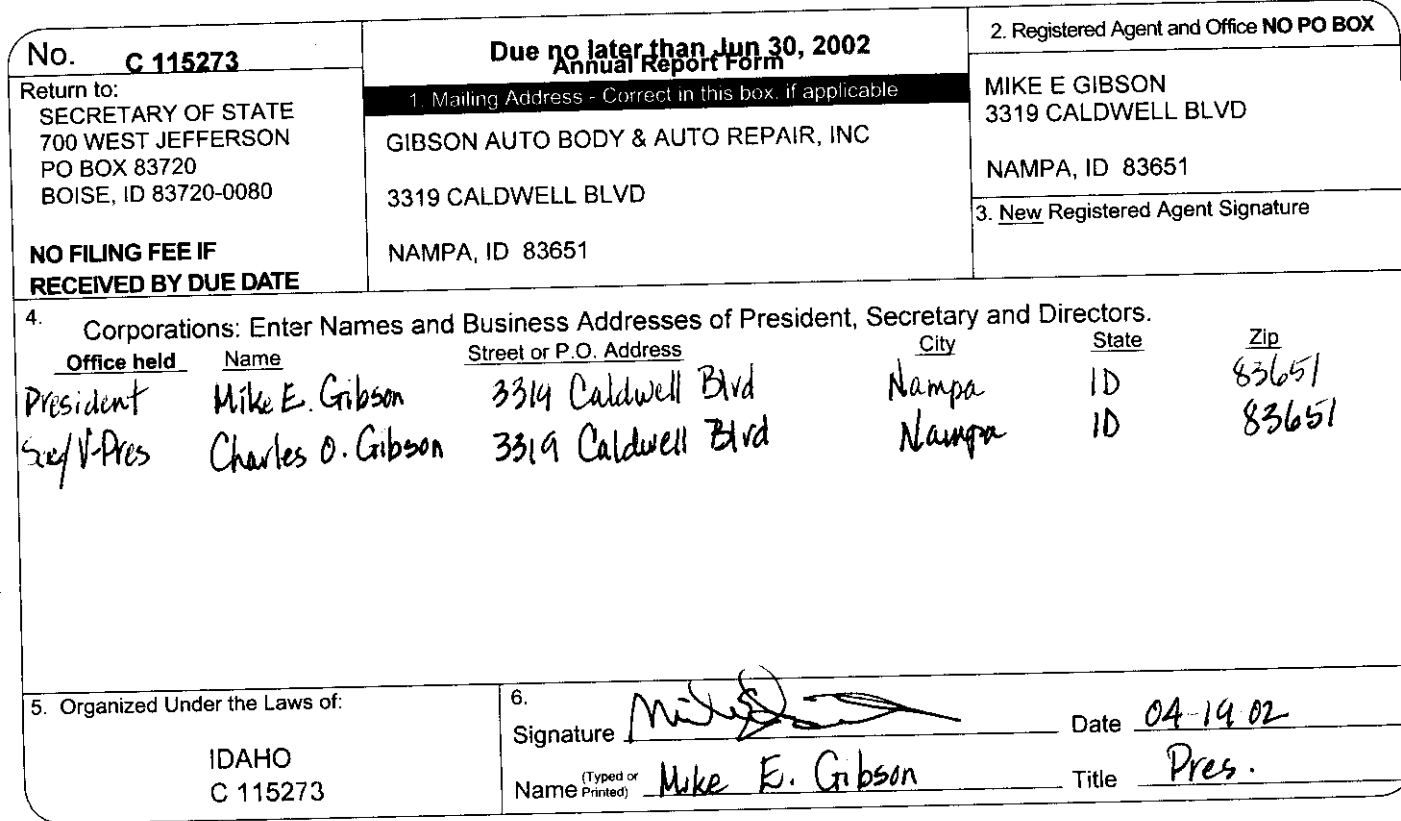 No. C 115273
Return to:
SECRETARY OF STATE
700 WEST JEFFERSON
PO BOX 83720
BOISE, ID 83720-0080
NO FILING FEE IF
RECEIVED BY DUE DATE
Due no later than Jun 30, 2002
Annual Report Form
1. Mailing Address - Correct in this box, if applicable
GIBSON AUTO BODY & AUTO REPAIR, INC
3319 CALDWELL BLVD
NAMPA, ID 83651
2. Registered Agent and Office NO PO BOX
MIKE E GIBSON
3319 CALDWELL BLVD
NAMPA, ID 83651
3. New Registered Agent Signature
4. Corporations: Enter Names and Business Addresses of President, Secretary and Directors.
Office held Name Street or P.O. Address City State Zip
President Mike E. Gibson 3319 Caldwell Blvd Nampa ID 83651
Sec/V-Pres Charles O. Gibson 3319 Caldwell Blvd Nampa ID 83651
5. Organized Under the Laws of:
IDAHO
C 115273
6.
Signature Date 04-19-02
Name (Typed or Printed) Mike E. Gibson Title Pres.